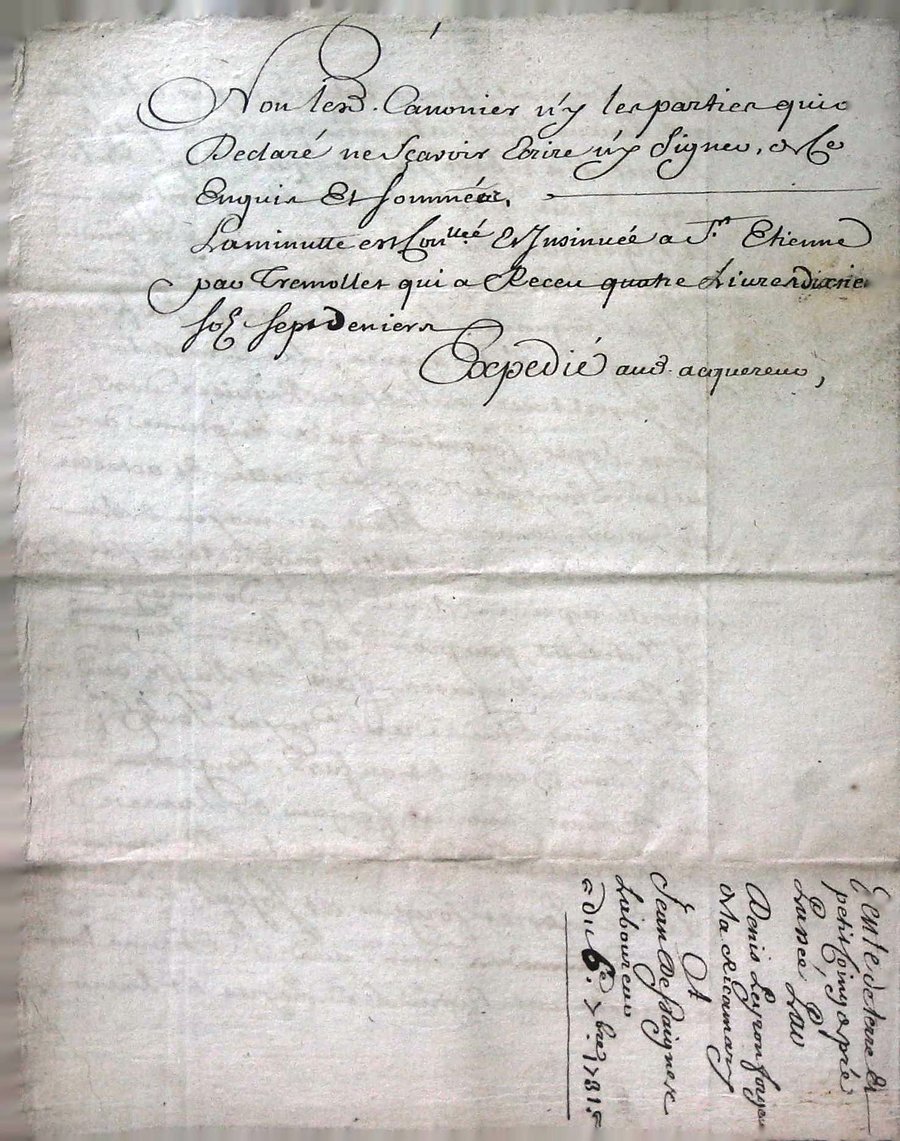 Non led. Canonier n'y les parties qui o
Declaré ne sçavoir Ecrire n'y Signer, de ce
Enquis Et sommées.
La minutte est Con.llée Et Insinuée a St. Etienne
par Tremollet qui a Receu quatre Livres dix
sols sept Deniers
Expedié aud. acquereur,
Vente de terre Et
petit Coing de pré
Lusée Par
Denis Leyron forgeur
Ma Ricamary
A
Jean Dessaignes
Laboureur
du 6e. 7bre 1781.